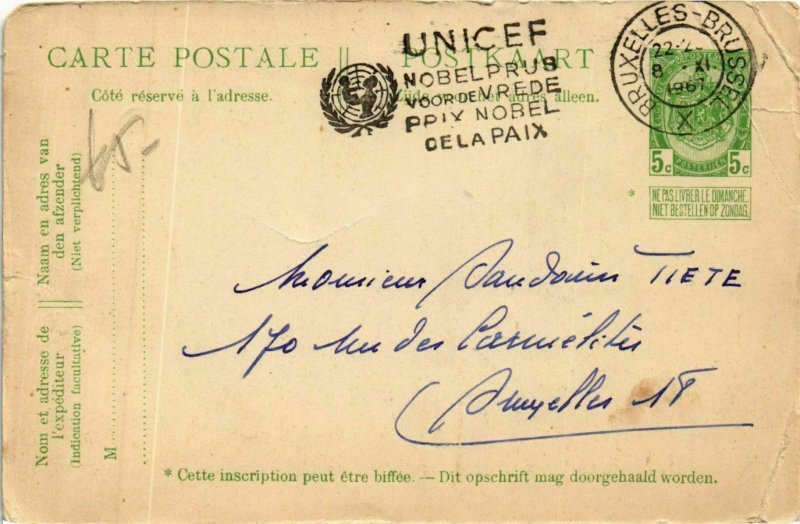 CARTE POSTALE || POSTKAART
Côté réservé à l'adresse.
adres alleen.
UNICEF
NOBELPRIJS
VOOR DE VREDE
PRIX NOBEL
DE LA PAIX
BRUXELLES-BRUSSEL
8 XI
1967
X
5c POSTERIJEN 5c
* NE PAS LIVRER LE DIMANCHE.
NIET BESTELLEN OP ZONDAG.
Naam en adres van
den afzender
(Niet verplichtend)
Nom et adresse de
l'expéditeur
(Indication facultative)
M
65.-
Monsieur Baudouin TIETE
170 rue des Carmélites
Bruxelles 18
* Cette inscription peut être biffée. — Dit opschrift mag doorgehaald worden.